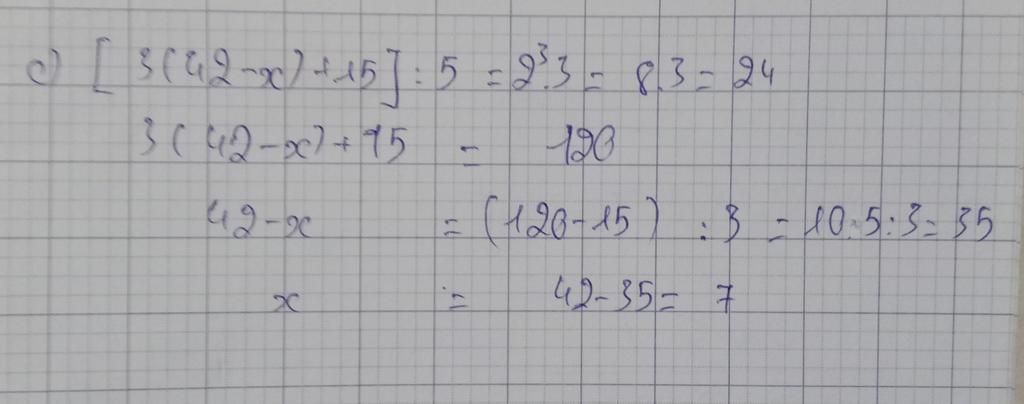 c) [ 3(42-x)+15] : 5 = 2³.3 = 8.3 = 24
3(42-x)+15 = 120
42-x = (120-15) : 3 = 10.5:3 = 35
x = 42-35 = 7